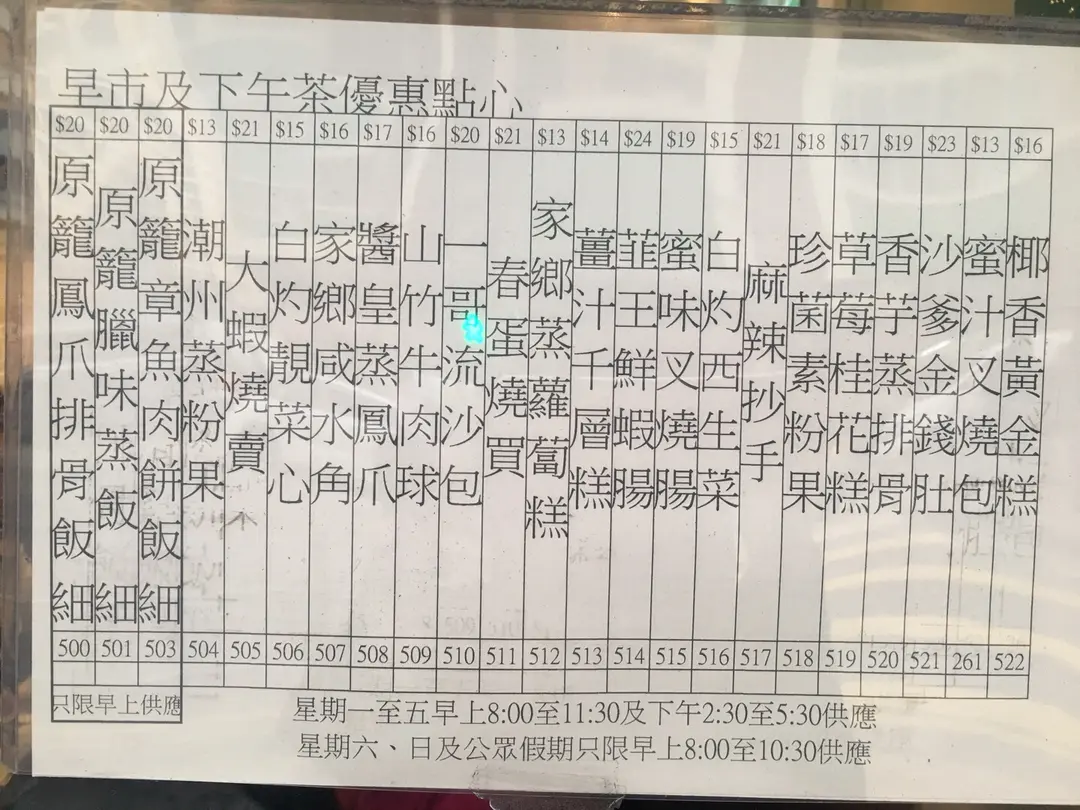 早市及下午茶優惠點心
$20 $20 $20 $13 $21 $15 $16 $17 $16 $20 $21 $13 $14 $24 $19 $15 $21 $18 $17 $19 $23 $13 $16
原籠鳳爪排骨飯細
原籠臘味蒸飯細
原籠章魚肉餅飯細
潮州蒸粉果
大蝦燒賣
白灼靚菜心
家鄉咸水角
醬皇蒸鳳爪
山竹牛肉球
一哥流沙包
春蛋燒買
家鄉蒸蘿蔔糕
薑汁千層糕
韮王鮮蝦腸
蜜味叉燒腸
白灼西生菜
麻辣抄手
珍菌素粉果
草莓桂花糕
香芋蒸排骨
沙爹金錢肚
蜜汁叉燒包
椰香黃金糕
500 501 503 504 505 506 507 508 509 510 511 512 513 514 515 516 517 518 519 520 521 261 522
只限早上供應
星期一至五早上8:00至11:30及下午2:30至5:30供應
星期六、日及公眾假期只限早上8:00至10:30供應